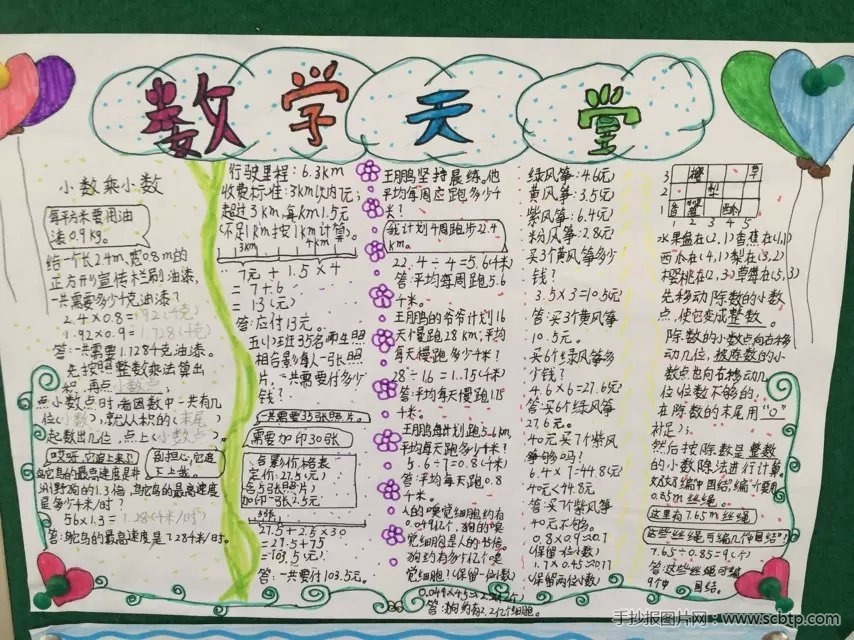 数学天堂
小数乘小数
每平方米要用油
漆0.9kg。
给一个长2.4m,宽0.8m的
正方形宣传栏刷油漆,
一共需要多少千克油漆?
2.4×0.8=1.92(4克)
1.92×0.9=1.728(千克)
答:一共需要1.1284克油漆。
先按照整数乘法算出
积,再点小数点,
点小数点时,看因数中一共有几
位(小数),就从积的(末尾)
起数出几位,点上(小数点)。
哎呀,它追上来了
别担心,它追
不上我。
鸵鸟的最高速度是非
洲野狗的1.3倍,鸵鸟的最高速度
是多少千米/时?
56×1.3=7.28(千米/时)
答:鸵鸟的最高速度是7.284米/时。
行驶里程:6.3km
收费标准:3km以内7元;
超过3km,每km1.5元
(不足1km按1km计算)。
3km
4km
7元+1.5×4
=7+6
=13(元)
答:应付13元。
五(1)班35名师生照
相合影每人一张照
片,一共需要付多少
钱?
一共需要35张照片。
需要加印30张
合影价格表
定价:27.5元
(含5张照片)
加印一张2.5元
27.5+2.5×30
=27.5+75
=103.5(元)
答:一共要付103.5元。
王月鹏坚持晨练。他
平均每周应跑多少千
米?
我计划4周跑步22.4
km。
22.4÷4=5.6(千米)
答:平均每周跑5.6
千米。
王月鹏的爷爷计划16
天慢跑28km,平均
每天慢跑多少千米?
28÷16=1.75(千米)
答:平均每天慢跑1.75
千米。
王月鹏每周计划跑5.6km,
平均每天跑多少千米?
5.6÷7=0.8(千米)
答:平均每天跑0.8
千米。
人的嗅觉细胞约有
0.049亿个,狗的嗅
觉细胞是人的45倍。
狗约有多少亿个嗅
觉细胞?(保留一位小数)
0.049×45≈2.2(亿个)
答:狗约有2.2亿个细胞。
绿风筝:4.6元
黄风筝:3.5元
紫风筝:6.4元
粉风筝:2.8元
买3个黄风筝多少
钱?
3.5×3=10.5元
答:买3个黄风筝
10.5元。
买6个绿风筝多
少钱?
4.6×6=27.6元
答:买6个绿风筝
27.6元。
40元买7个紫风
筝够吗?
6.4×7=44.8(元)
40元<44.8元
答:买7个紫风筝
40元不够。
0.8×0.9≈0.7
(保留一位小数)
1.7×0.45≈0.77
(保留两位小数)
3
2
1
樱
草
梨
香
西
1 2 3 4 5
水果盘在(2,1)香蕉在(1,1)
西瓜在(4,1)梨在(3,2)
樱桃在(2,3)草莓在(5,3)
先移动除数的小数
点,使它变成整数。
除数的小数点向右移
动几位,被除数的小
数点也向右移动几
位(位数不够的,
在除数的末尾用“0”
补足);
然后按除数是整数
的小数除法进行计算。
奶奶编中国结,编一个要用
0.85m丝绳。
这里有7.65m丝绳
这些丝绳可编几个中国结?
7.65÷0.85=9(个)
答:这些丝绳可编
9个中国结。
手抄报图片网:www.scbtp.com